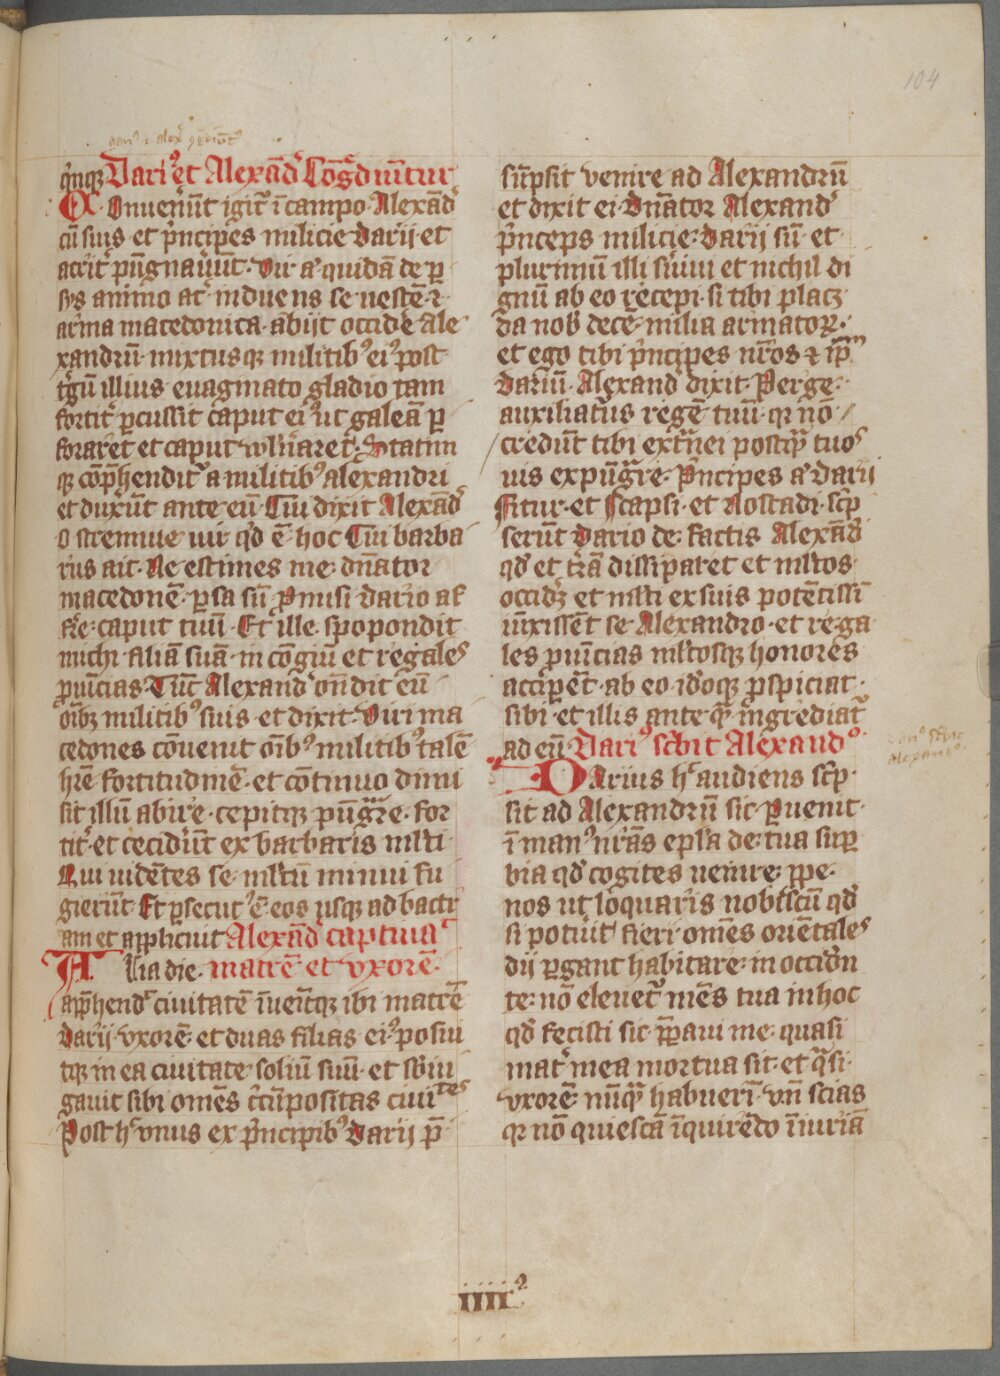 104
darius et alexander
qͥnqꝫ Dariꝰ et Alexād᷑ Cōg᷑diūtur
Conueneru̅t igit᷑ ī campo Alexād᷑
cū suis et pͥncipes milicie darij et
acrit᷑ pūgnauer̄ūt. Vir aͣ quidā de ꝑ
sys animo ac᷑ induens se uestē ⁊
arma macedonica abijt occid᷑e ale
xandrū mixtusqꝫ militibꝰ eiꝰ post
t᷑gū illius euaginato gladio tam
fortit᷑ ꝑcussit caput eiꝰ ut galeā ꝑ
foraret et caput wln̄aret. Statim
qꝫ cōp̄hendit᷑ a militibꝰ alexandri
et dux̄ūt ante eū Cui dixit Alexād᷑
o strennue uir qͥd ē hoc Cui barba
rus ait. Ne estimes me dn̄ator
macedonē ꝑsa sū ꝓmisi dario af
fer᷑e caput tuū. Et ille spopondit
michi filiā suā in cōgiū et regales
ꝓuīcias Tūc Alexand᷑ on̄dit eū
oīb᷑ꝫ militibꝰ suis et dixit. Viri ma
cedones cōuenit oībꝰ militibꝰ talē
hr̄e fortitudinē et cōtinuo dimi
sit illū abire. cepitqꝫ pūgͣre for
tit᷑ et cecider̄ūt ex barbaris mlti
Qui uidētes se mltū minui fu
gier̄ūt Et ꝑsecutꝰ ē eos usqꝫ ad bactr
am et applicuit Alexād᷑ captiua᷑
Alia die. matrē et vxorē
app̄hend᷑ ciuitatē īuenitqꝫ ibi matrē
darij vxorē et duas filias eiꝰ posiu
itqꝫ in ea ciuitate soliū suū et sb̄iu
gauit sibi omēs cͥcūpositas ciuitͣtes
Post hͨ vnus ex pͥncipibꝰ Darij p̄
sūpsit venire ad Alexandrū
et dixit ei Dn̄ator Alexand᷑
pͥnceps milicie darij sū et
plurimū illi ẜuiui et nichil di
gnū ab eo recepi. si tibi placꝫ
da nob᷑ decē milia armatoꝝ
et ego tibi pͥncipes nr̄os ⁊ ip̄m
dariū. Alexand᷑ dixit. Perge
auxiliat᷑us regē tuū qꝛ nō
credūt tibi ext᷑nei postqͣ tuos
uis expūgͣre. Pͥncipes aͣ Darij
Fitur et Scapsi et Nostadi scͥp
serūt Dario de factis Alexād᷑
qd᷑ et t᷑rā dissiparet et mltos
occid᷑ꝫ et mlti ex suis potētissī
iūxissēt se Alexandro et rega
les ꝓuīcias mltosqꝫ honores
acciperēt ab eo id᷑oqꝫ ꝓspiciat
sibi et illis ante qͣ ingrediat᷑
ad eū Dariꝰ sc͛bit Alexandͦ
Darius hͨ audiens scͥp
sit ad Alexandrū sic. Puenit
ī manꝰ nr̄as epl̄a de tua suꝑ
bia qd᷑ cogites uenire ꝓpe
nos ut loquaris nobͥscū qd᷑
si potuit fieri omēs oriētales
dij ꝑgant habitare in occidēn
te nō eleuet᷑ mēs tua in hoc
qd᷑ fecisti sic p̄paui me quasi
mat᷑ mea mortua sit et qͣsi
vxorē nūqͣ habuerī. vn̄ scias
qꝛ nō quiescā īquirēdo īiuriā
iiiiꝰ